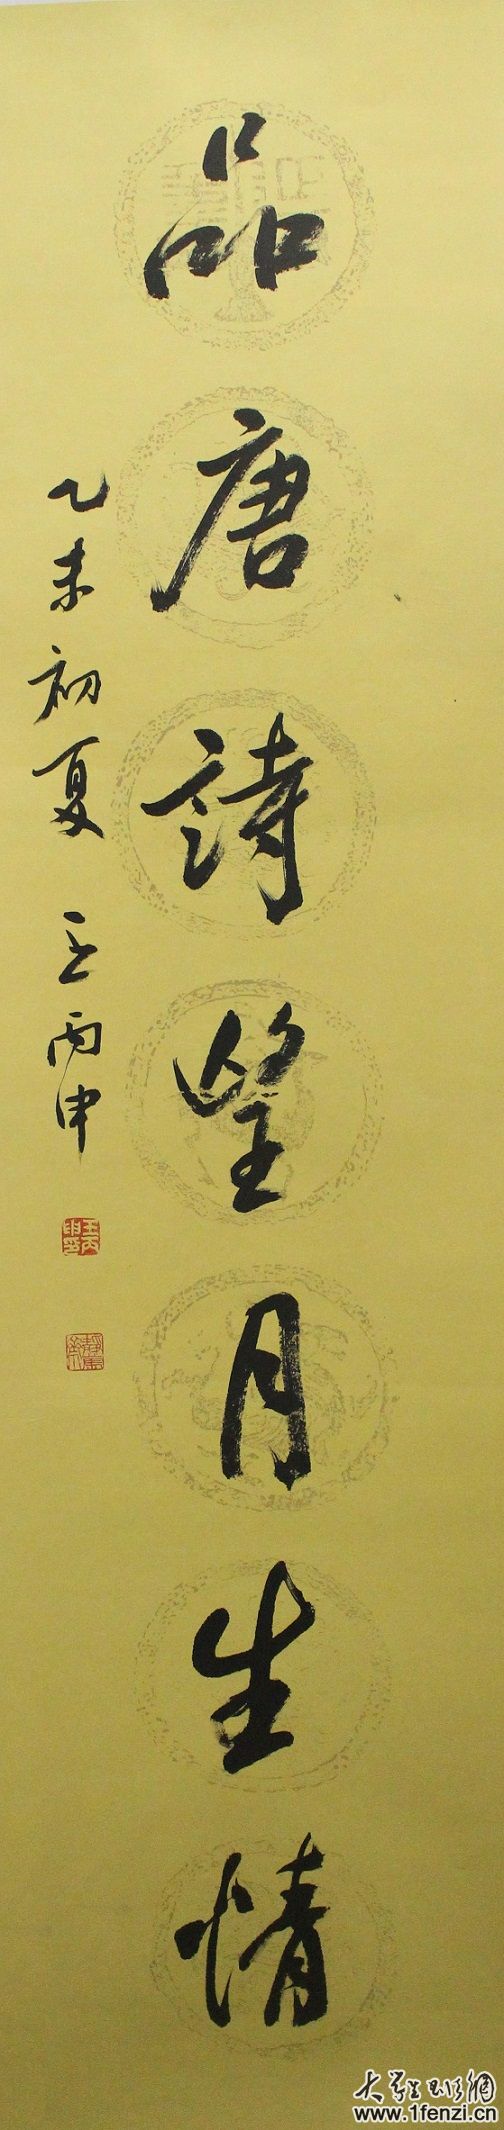 品唐詩望月生情
乙未初夏 王丙申
王丙申印
www.1fenzi.cn